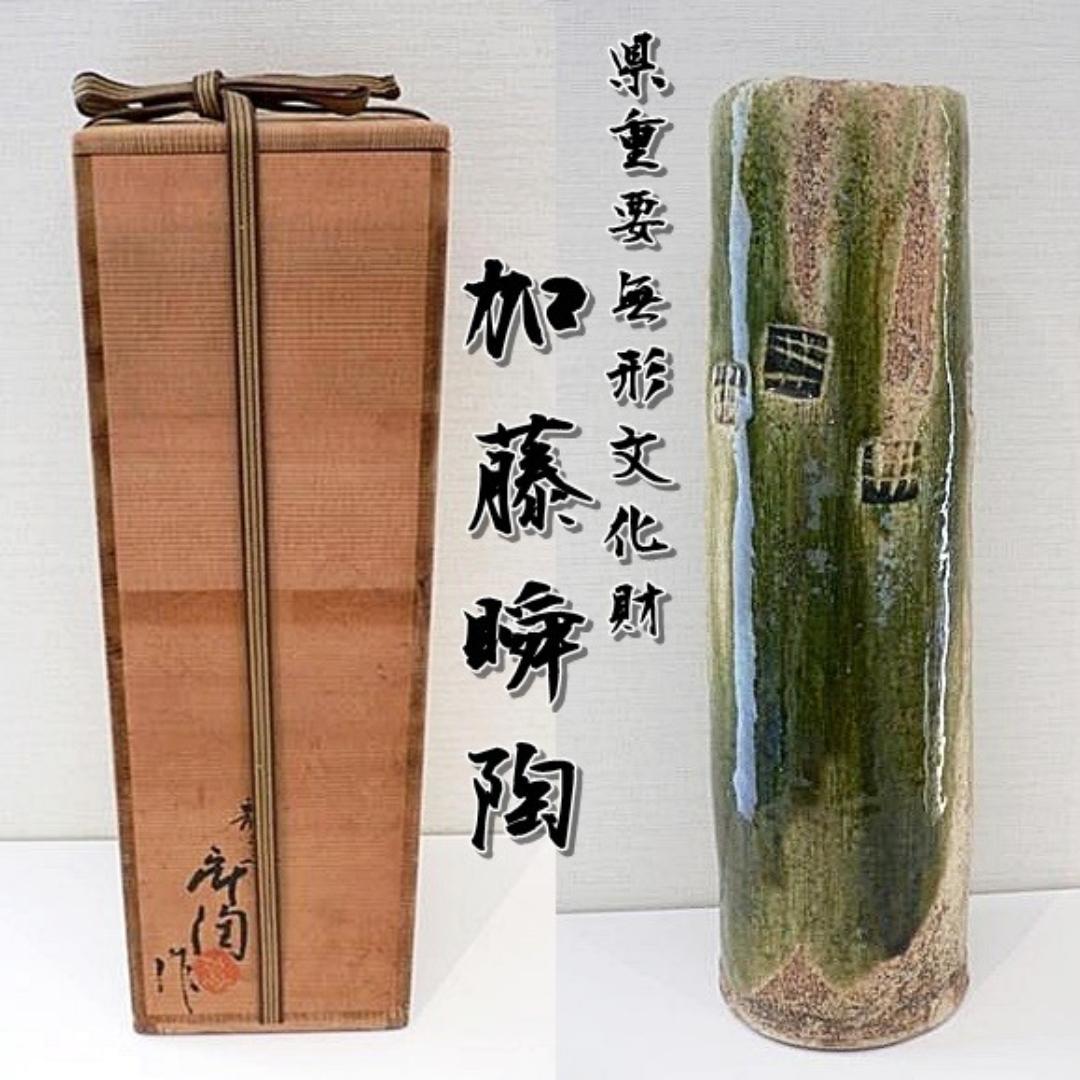 県重要無形文化財
加藤瞬陶
作